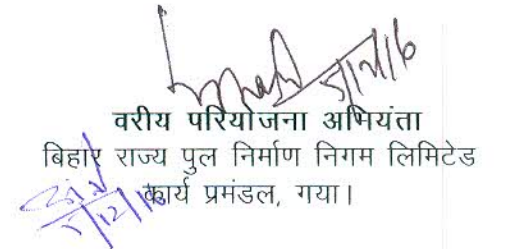 वरीय परियोजना अभियंता
बिहार राज्य पुल निर्माण निगम लिमिटेड
कार्य प्रमंडल, गया।